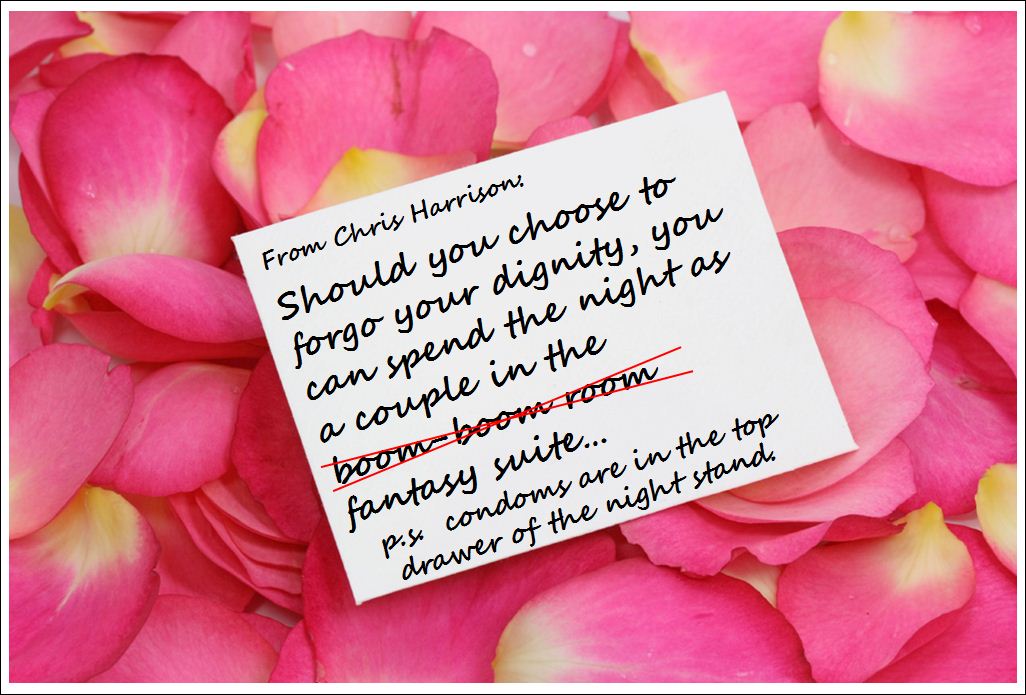 From Chris Harrison:
Should you choose to
forgo your dignity, you
can spend the night as
a couple in the
boom-boom room
fantasy suite...
p.s. condoms are in the top
drawer of the night stand.